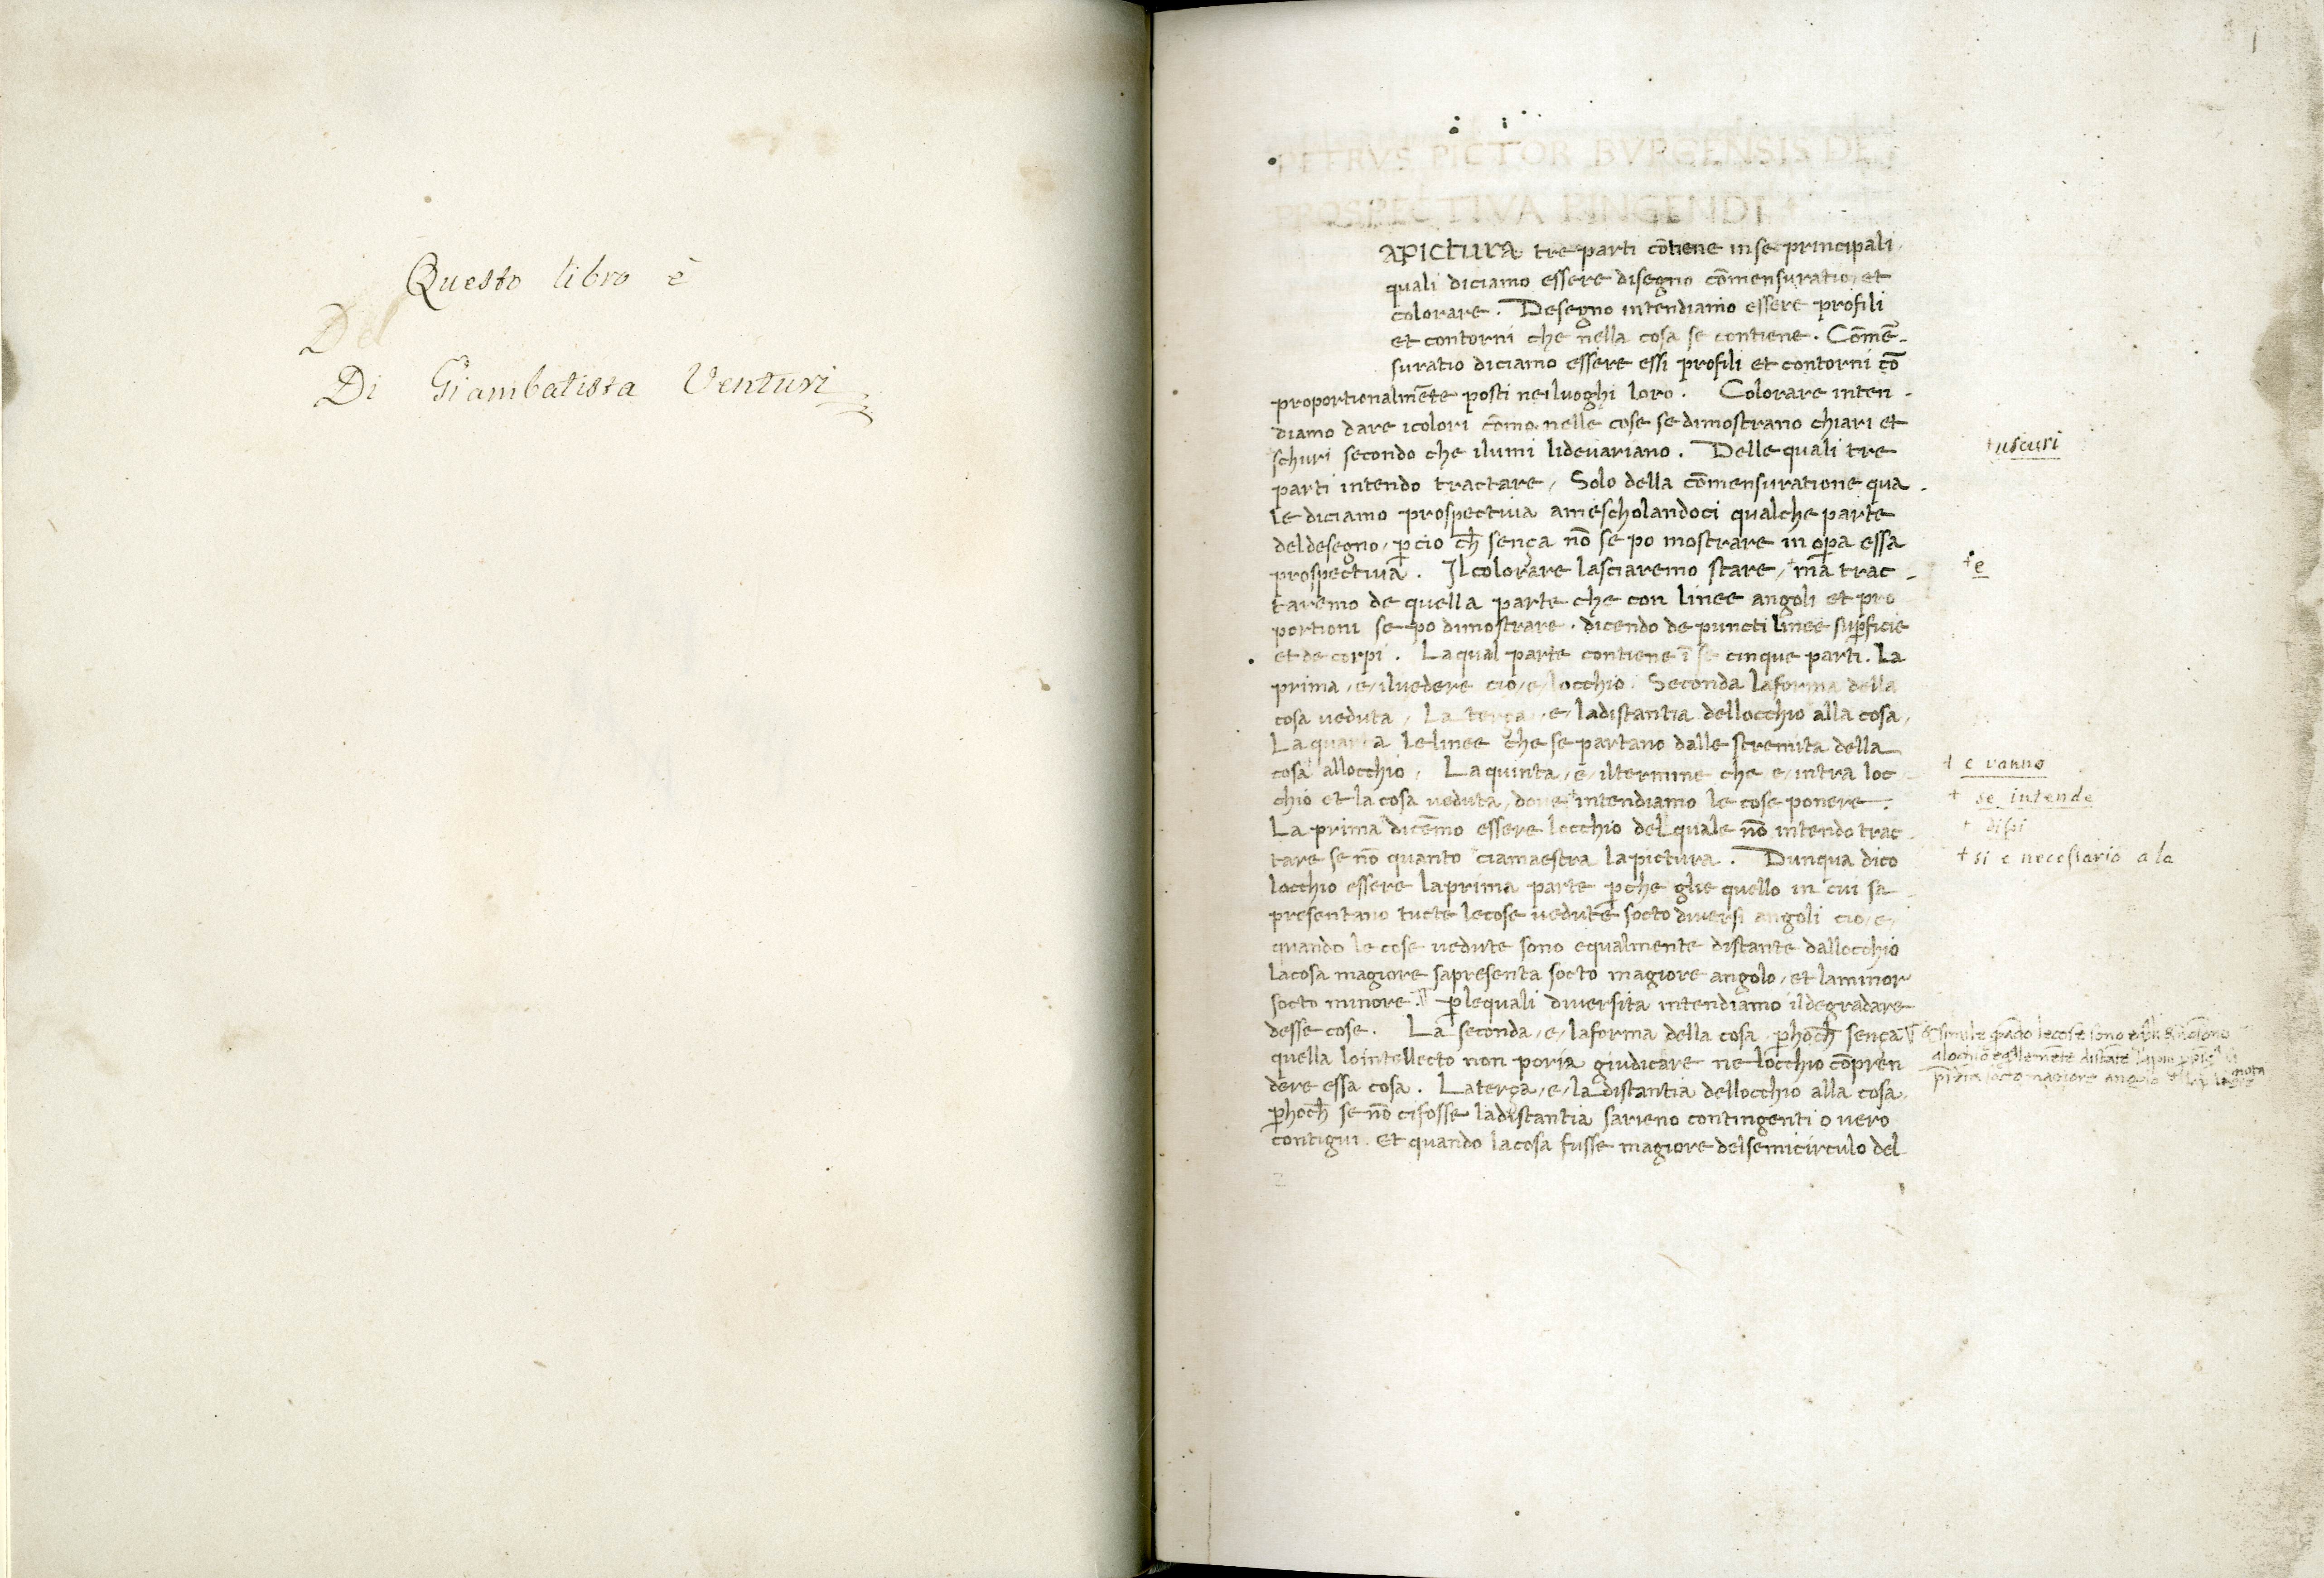 Questo libro è
Del
Di Giambatista Venturi
1
PETRVS PICTOR BVRGENSIS DE
PROSPECTIVA PINGENDI
aPICTURA tre parti cōtiene in se principali
quali diciamo essere disegno cōmensuratio et
colorare. Desegno intendiamo essere profili
et contorni che nella cosa se contiene. Cōmē-
suratio diciamo essere essi profili et contorni cō
proportionalmēte posti nei luoghi loro. Colorare inten-
diamo dare icolori cōmo nelle cose se dimostrano chiari et
schuri secondo che ilumi lidevariano. Delle quali tre
parti intendo tractare, Solo della cōmensuratione qua-
le diciamo prospectiva amescholandoci qualche parte
deldesegno, p̄cio ch̄ sença nō se po mostrare in op̄a essa
prospectiva. Ilcolorare lasciaremo stare, +ma trac-
taremo de quella parte che con linee angoli et pro
portioni se po dimostrare. dicendo de puncti linee sup̄ficie
et de corpi. Laqual parte contiene ī se cinque parti. La
prima, e, ilvedere cio, e, locchio. Seconda laforma della
cosa veduta, La terça, e, ladistantia dellocchio alla cosa,
La quarta le linee che se partano dalle stremita della
cosa allocchio, La quinta, e, iltermine che e, intra loc
chio et la cosa veduta, dove +intendiamo le cose ponere.
La prima dicēmo essere locchio del quale nō intendo trac
tare se nō quanto +ciamaestra lapictura. Dunqua dico
locchio essere laprima parte p̄che glie quello in cui sa
presentano tucte lecose vedute socto diversi angoli cio, e,
quando le cose vedute sono equalmente distante dallocchio
lacosa magiore sapresenta socto magiore angolo, et laminor
socto minore. p̄lequali diversita intendiamo ildegradare
desse cose. La seconda, e, laforma della cosa, p̄hoch̄ sença
quella lointellecto non poria giudicare ne locchio cōpren
dere essa cosa. Laterça, e, la distantia dellocchio alla cosa,
p̄hoch̄ se nō cifosse ladistantia sarieno contingenti o vero
contigui. Et quando lacosa fusse magiore delsemicirculo del
+ uscuri
+ e
+ e vanno
+ se intende
+ disi
+ si e necessario a la
nota